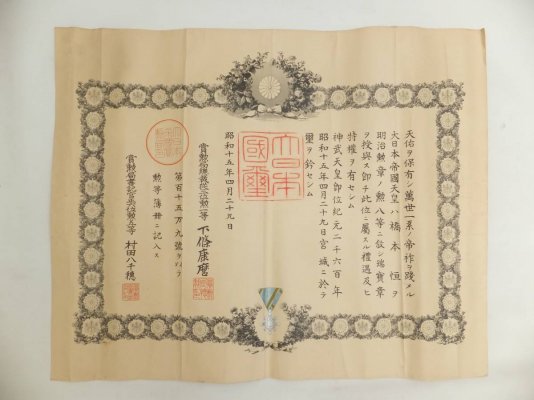 天佑ヲ保有シ萬世一系ノ帝祚ヲ踐メル
大日本帝國天皇ハ橋本恒ヲ
明治勲章ノ勲八等ニ敍シ瑞寶章
ヲ授與ス即チ此位ニ屬スル禮遇及ヒ
特權ヲ有セシム
神武天皇即位紀元二千六百年
昭和十五年四月二十九日宮城ニ於テ
璽ヲ鈐セシム
大日本國璽
昭和十五年四月二十九日
賞勲局總裁 下條康麿
第百十五万九號ヲ以テ
勲等簿冊ニ記入ス
賞勲局 村田八千穂